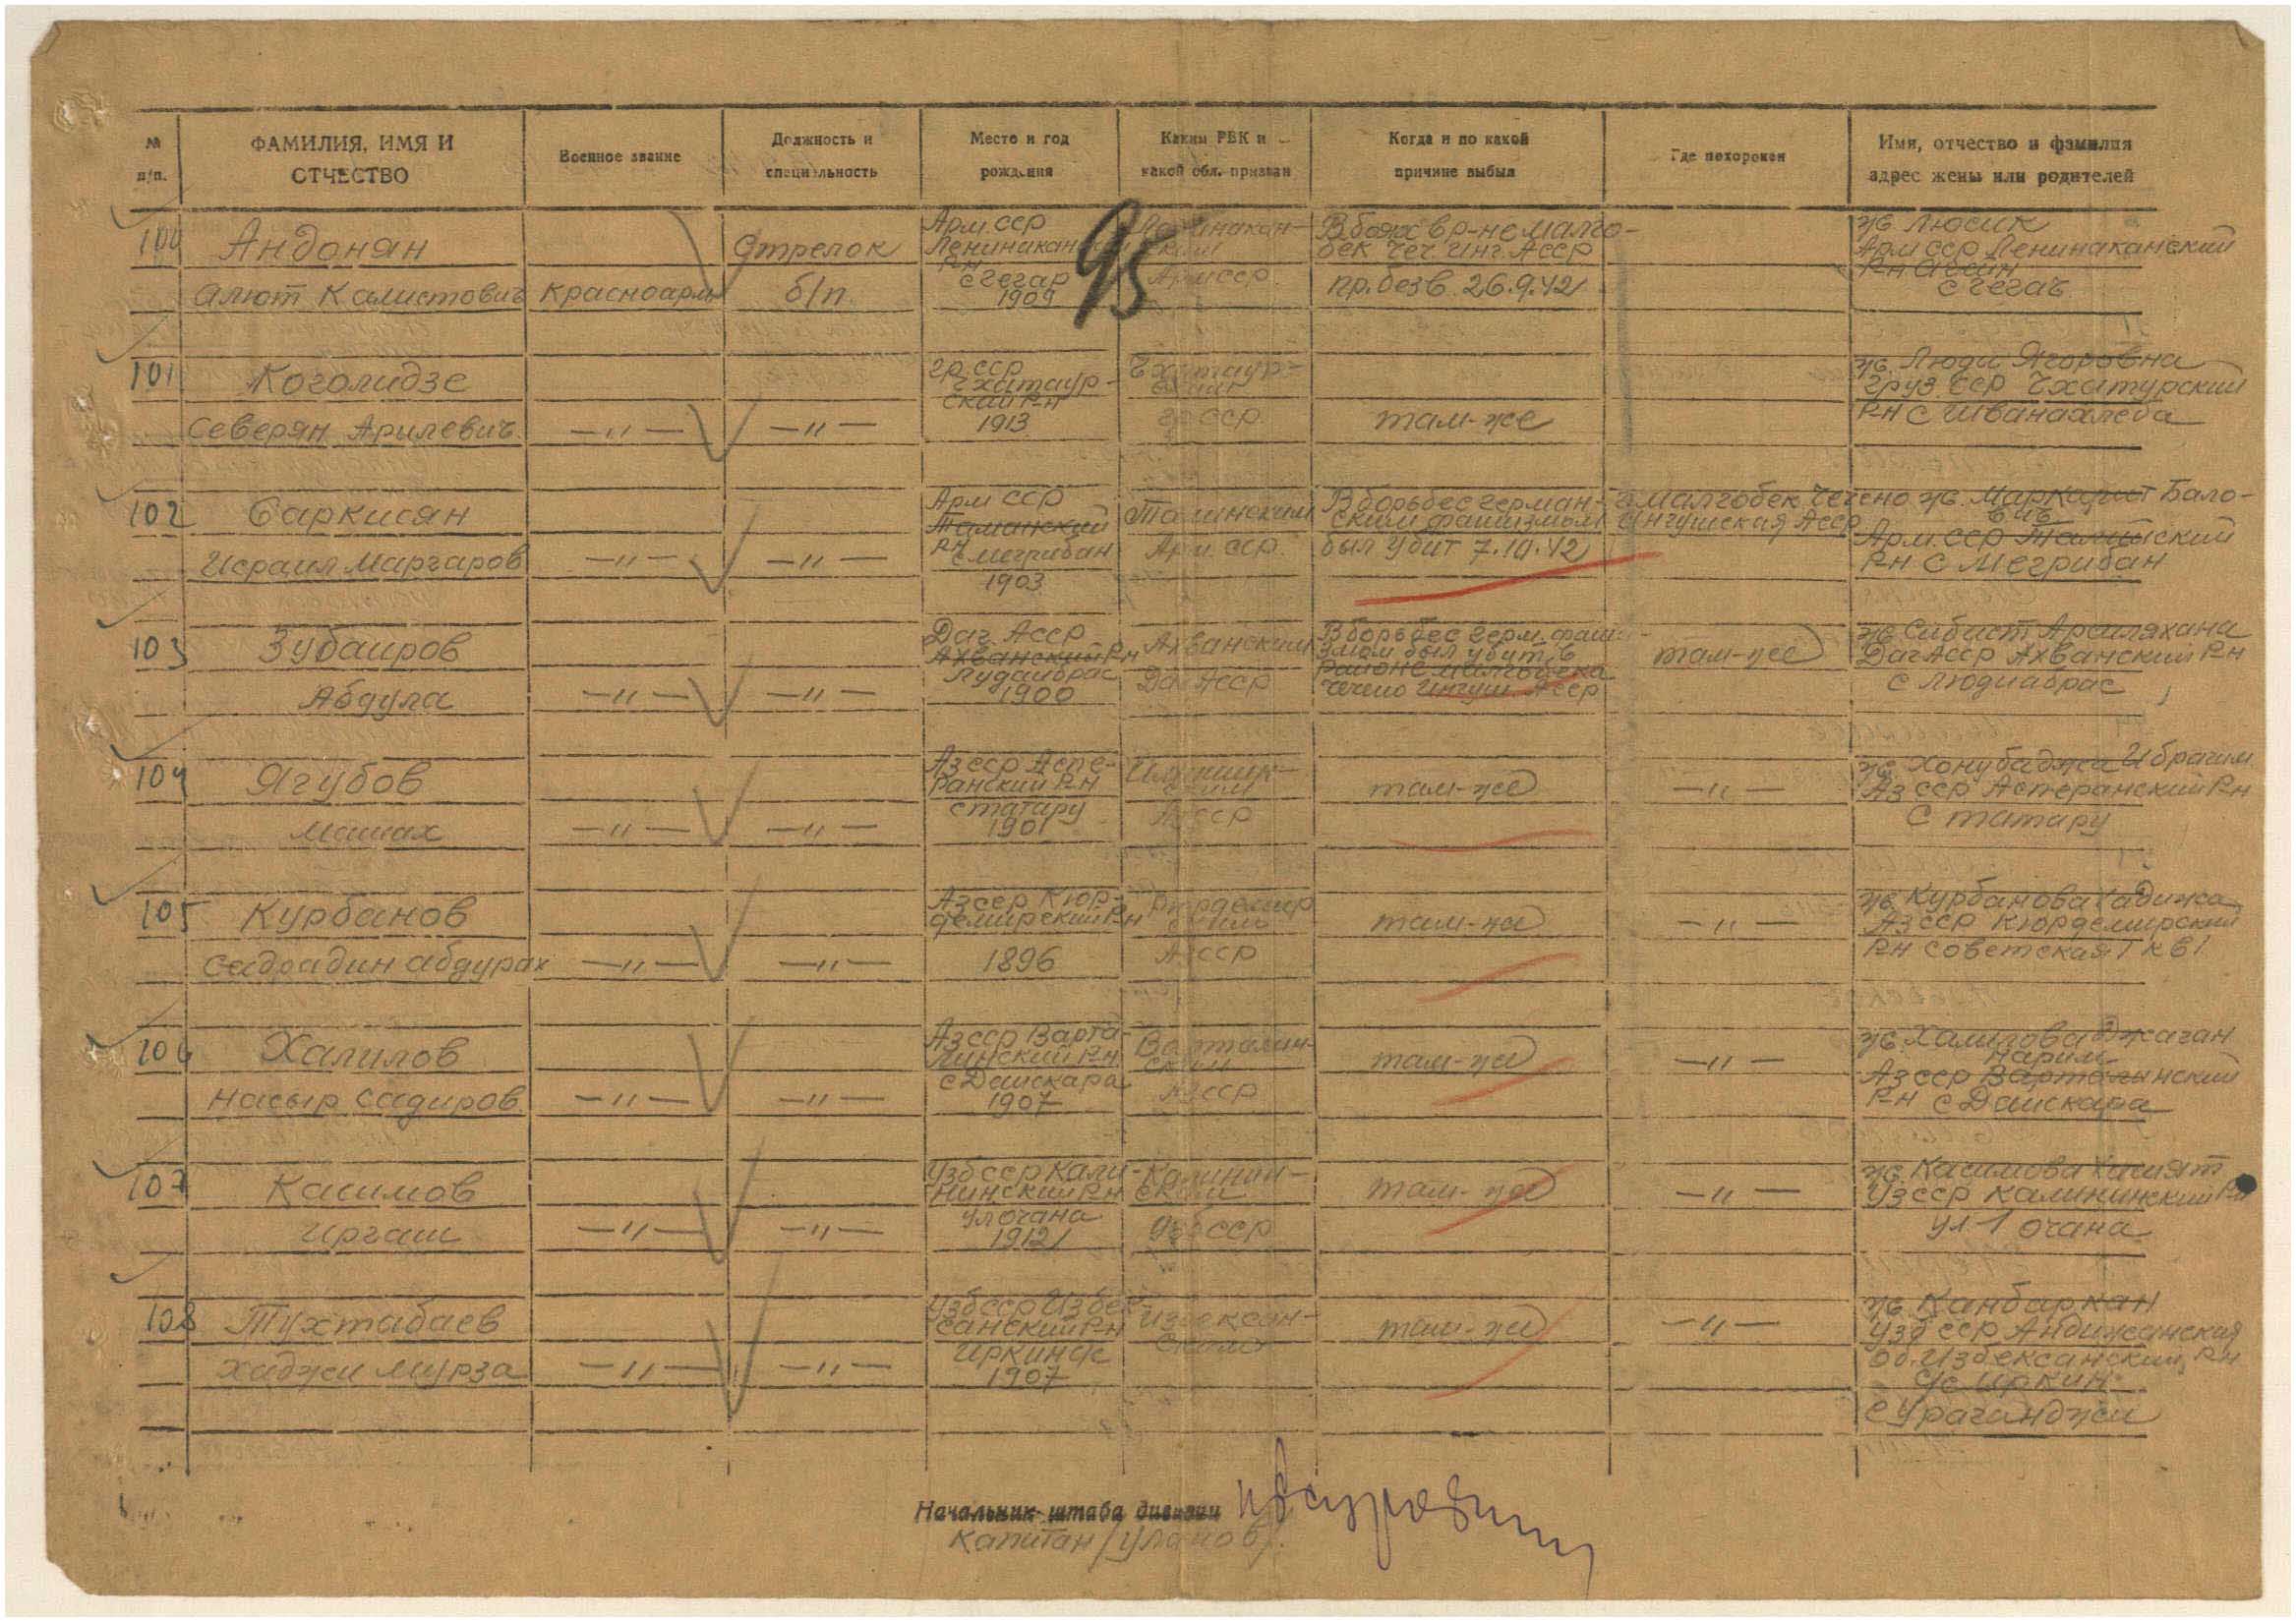 № п/п.
ФАМИЛИЯ, ИМЯ И ОТЧЕСТВО
Военное звание
Должность и специальность
Место и год рождения
Каким РВК и какой обл. призван
Когда и по какой причине выбыл
Где похоронен
Имя, отчество и фамилия адрес жены или родителей
95
100 Андонян
Алют Калистович
Красноарм
Стрелок
б/п.
Арм.ССР
Ленинаканский
Рн
с Гегар
1909
Арм ССР
В боях в р-не Малго-
бек Чеч Инг. АССР
пр. без в. 26.9.42
ж. Люсик
Арм ССР Ленинаканский
Рн
101 Коголидзе
Северян Арилевич
— " —
— " —
Гр ССР
Чхатаур-
ский Рн
1913
Чхатаур-
ским
Гр ССР
там-же
ж. Люди Ягоровна
Груз. ССР Чхатурский
Рн С
102 Саркисян
Исраил Маргаров
— " —
— " —
Арм ССР
Рн
с Мегрибан
1903
Талинским
Арм. ССР
В борьбе с герман-
ским фашизмом
был убит 7.10.42
г Малгобек Чечено
Ингушская АССР
ж. Маркарит Бало-
Арм. ССР Талинский
Рн С Мегрибан
103 Зубаиров
Абдула
— " —
— " —
Даг. АССР
Ахванский Рн
1900
Ахванским
Даг АССР
В борьбе с герм. фаши-
змом был убит в
районе Малгобека
Чечено Ингуш. АССР
там-же
ж. Сибист Арсиляхана
Даг АССР Ахванский Рн
с Людиабрас
104 Ягубов
Машах
— " —
— " —
Аз ССР Аспе-
ранский Рн
с Татару
1901
Аз ССР
там-же
— " —
ж. Хонубаджи Ибрагим
Аз ССР Астеранский Рн
С Татару
105 Курбанов
Садрадин Абдурах
— " —
— " —
Аз ССР Кюр-
демирский Рн
1896
Кюрдемир
ским
Аз ССР
там-же
— " —
ж. Курбанова Хадижа
Аз ССР Кюрдемирский
Рн Советская 1 кв 1
106 Халилов
Насыр Садиров
— " —
— " —
Аз ССР Варта-
линский Рн
с Дашкара
1907
Варталин-
ским
Аз ССР
там-же
— " —
ж. Халилова Джаган
Нарим
Аз ССР Варталинский
Рн С Дашкара
107 Касимов
Иргаш
— " —
— " —
Узб ССР Кали-
нинский Рн
ул Очана
1912
Калинин-
ским
Узб ССР
там-же
— " —
ж. Касимова
Уз ССР Калининский Рн
ул 1 Очана
108 Тухтабаев
Хаджи Мурза
— " —
— " —
Узб ССР Избек-
санский Рн
Иркинск
1907
Избексан-
ским
там-же
— " —
ж. Канбаркан
Узб ССР Андижанская
об. Избексанский Рн
с/с Иркин
С Ураганджи
Начальник штаба дивизии
Капитан /Уланов/.